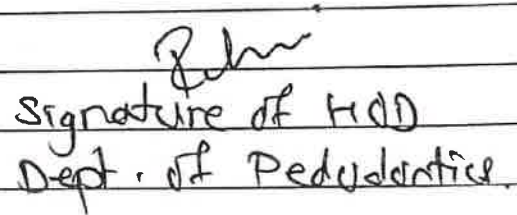 Signature of HOD
Dept. of Pedodontics.